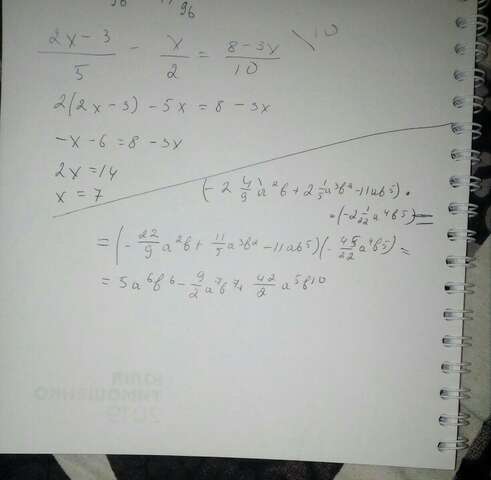 96 96
(2x-3)/5 - x/2 = (8-3x)/10 \10
2(2x-3) - 5x = 8 - 3x
-x - 6 = 8 - 3x
2x = 14
x = 7
(-2 4/9 a²b + 2 1/5 a³b² - 11ab⁵) ·
· (-2 1/22 a⁴b⁵) =
= (-22/9 a²b + 11/5 a³b² - 11ab⁵)(-45/22 a⁴b⁵) =
= 5a⁶b⁶ - 9/2 a⁷b⁷ + 42/2 a⁵b¹⁰
ЮЛІЯ
ТИМОШЕНКО
2019